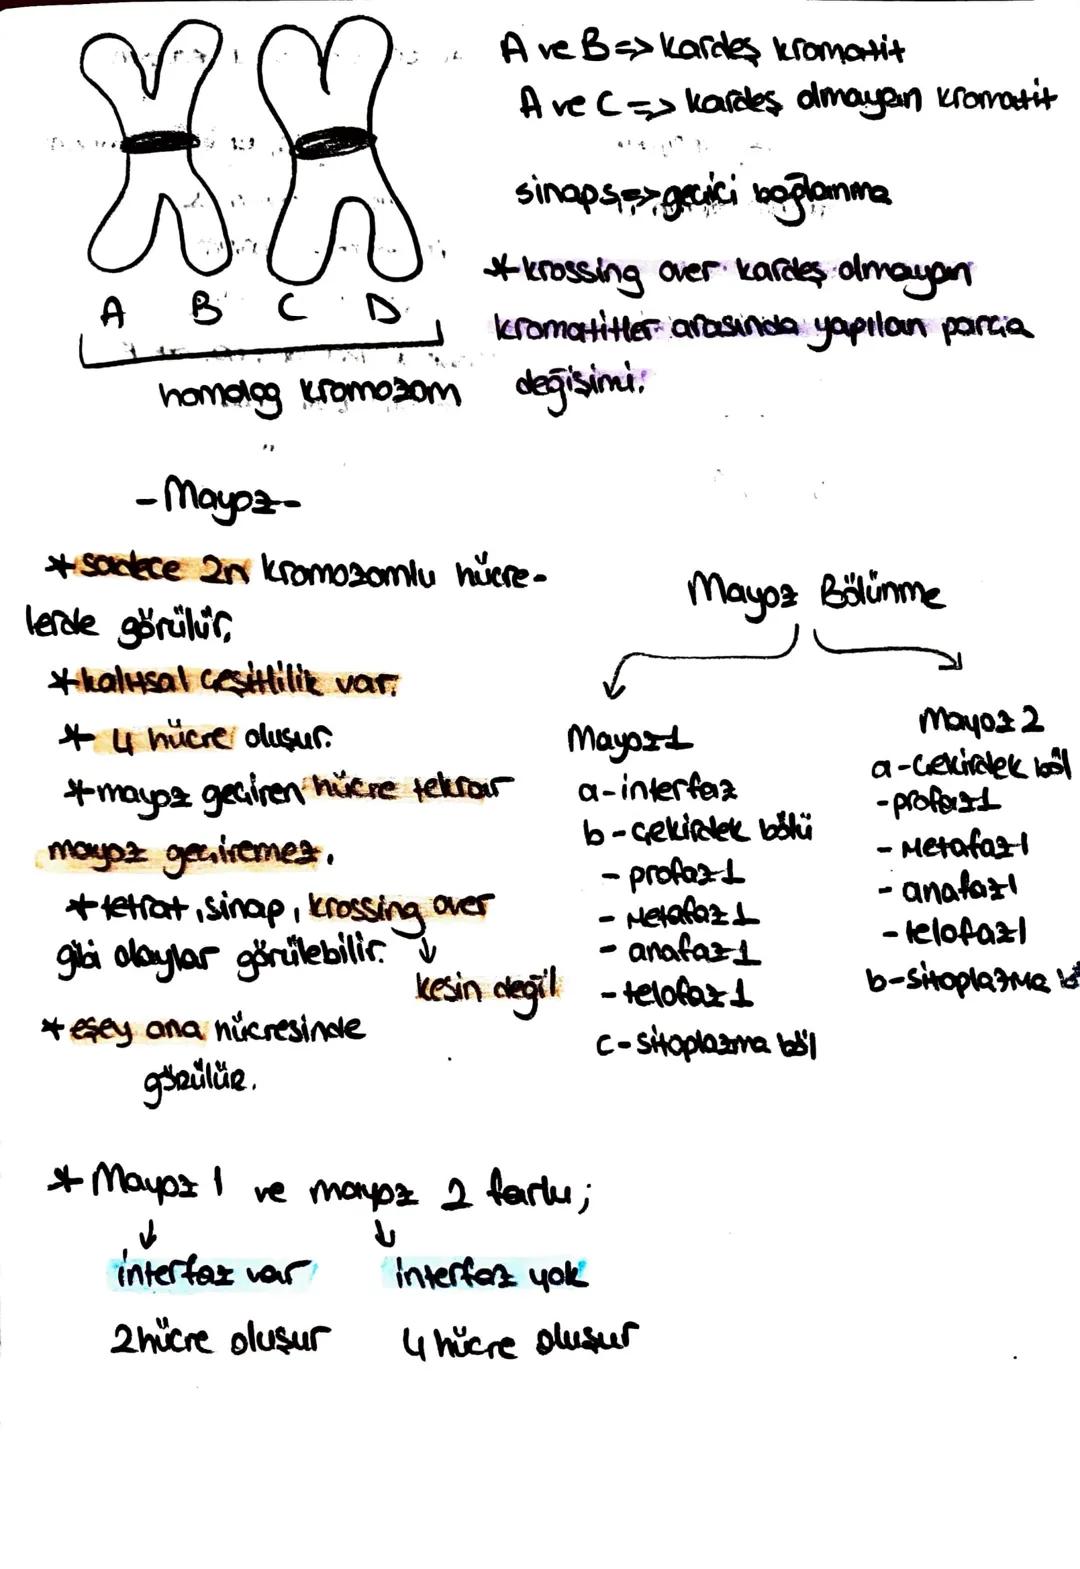 A ve B => kardeş kromatit
A ve C => kardeş olmayan kromatit
sinaps => geçici bağlanma
* krossing over kardeş olmayan
kromatitler arasında yapılan parça
değişimi.
A B C D
homolog kromozom
- Mayoz -
* sadece 2n kromozomlu hücre-
lerde görülür,
* kalıtsal çeşitlilik var.
* 4 hücre oluşur.
* mayoz geçiren hücre tekrar
mayoz geçiremez.
* tetrat, sinap, krossing over
gibi olaylar görülebilir. ↓
kesin değil
* eşey ana hücresinde
görülür.
Mayoz Bölünme
Mayoz 1
a- interfaz
b- çekirdek bölü
- profaz 1
- Metafaz 1
- anafaz 1
- telofaz 1
c- sitoplazma böl
Mayoz 2
a- çekirdek böl
- profaz 1
- Metafaz 1
- anafaz 1
- telofaz 1
b- sitoplazma bö
* Mayoz 1 ve mayoz 2 farkı;
interfaz var interfaz yok
2 hücre oluşur 4 hücre oluşur